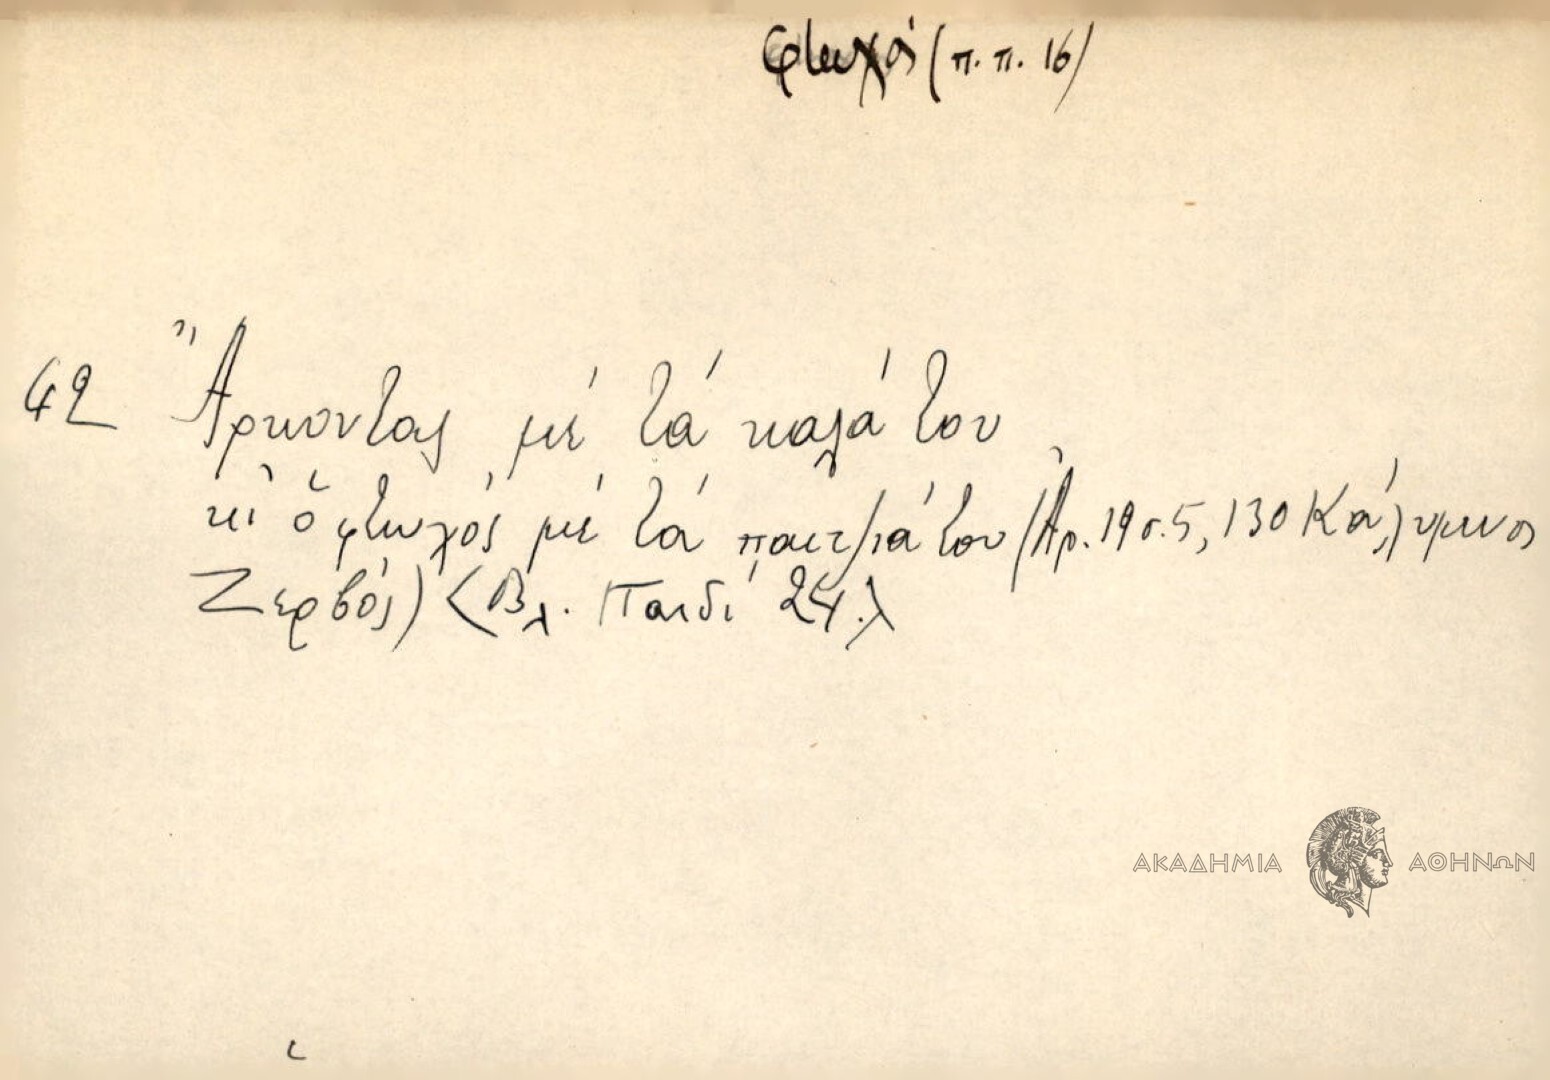 φτωχός (π. π. 16)
42 Ἄρκοντας μέ τά καλά του
κι ὁ φτωχός μέ τά παιτιά του (Ἀρ. 19 σ. 5, 130 Κάλυμνος
Ζερβός) < Βλ. Παιδί 24.>
ΑΚΑΔΗΜΙΑ ΑΘΗΝΩΝ